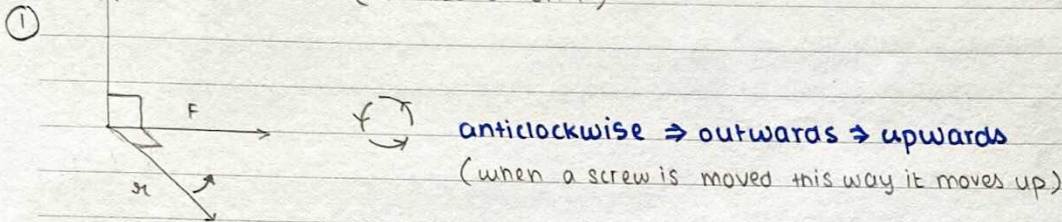 ①
F
anticlockwise ⇒ outwards ⇒ upwards
(when a screw is moved this way it moves up)
r